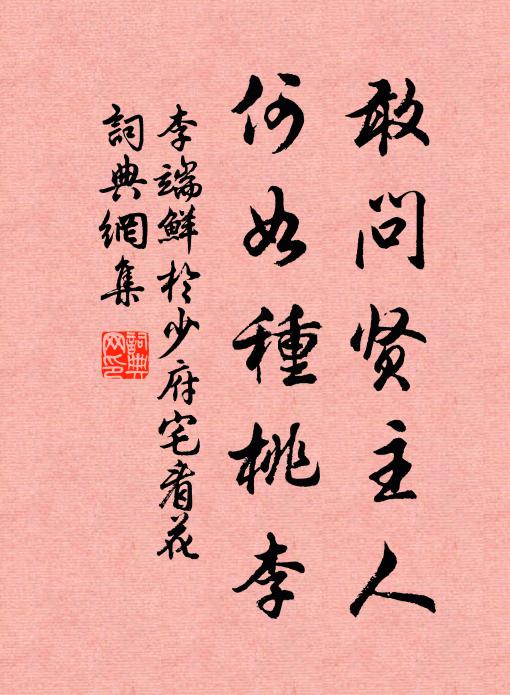 敢问贤主人
何如種桃李
李端鮮於少府宅看花
詞典網集
詞典網印